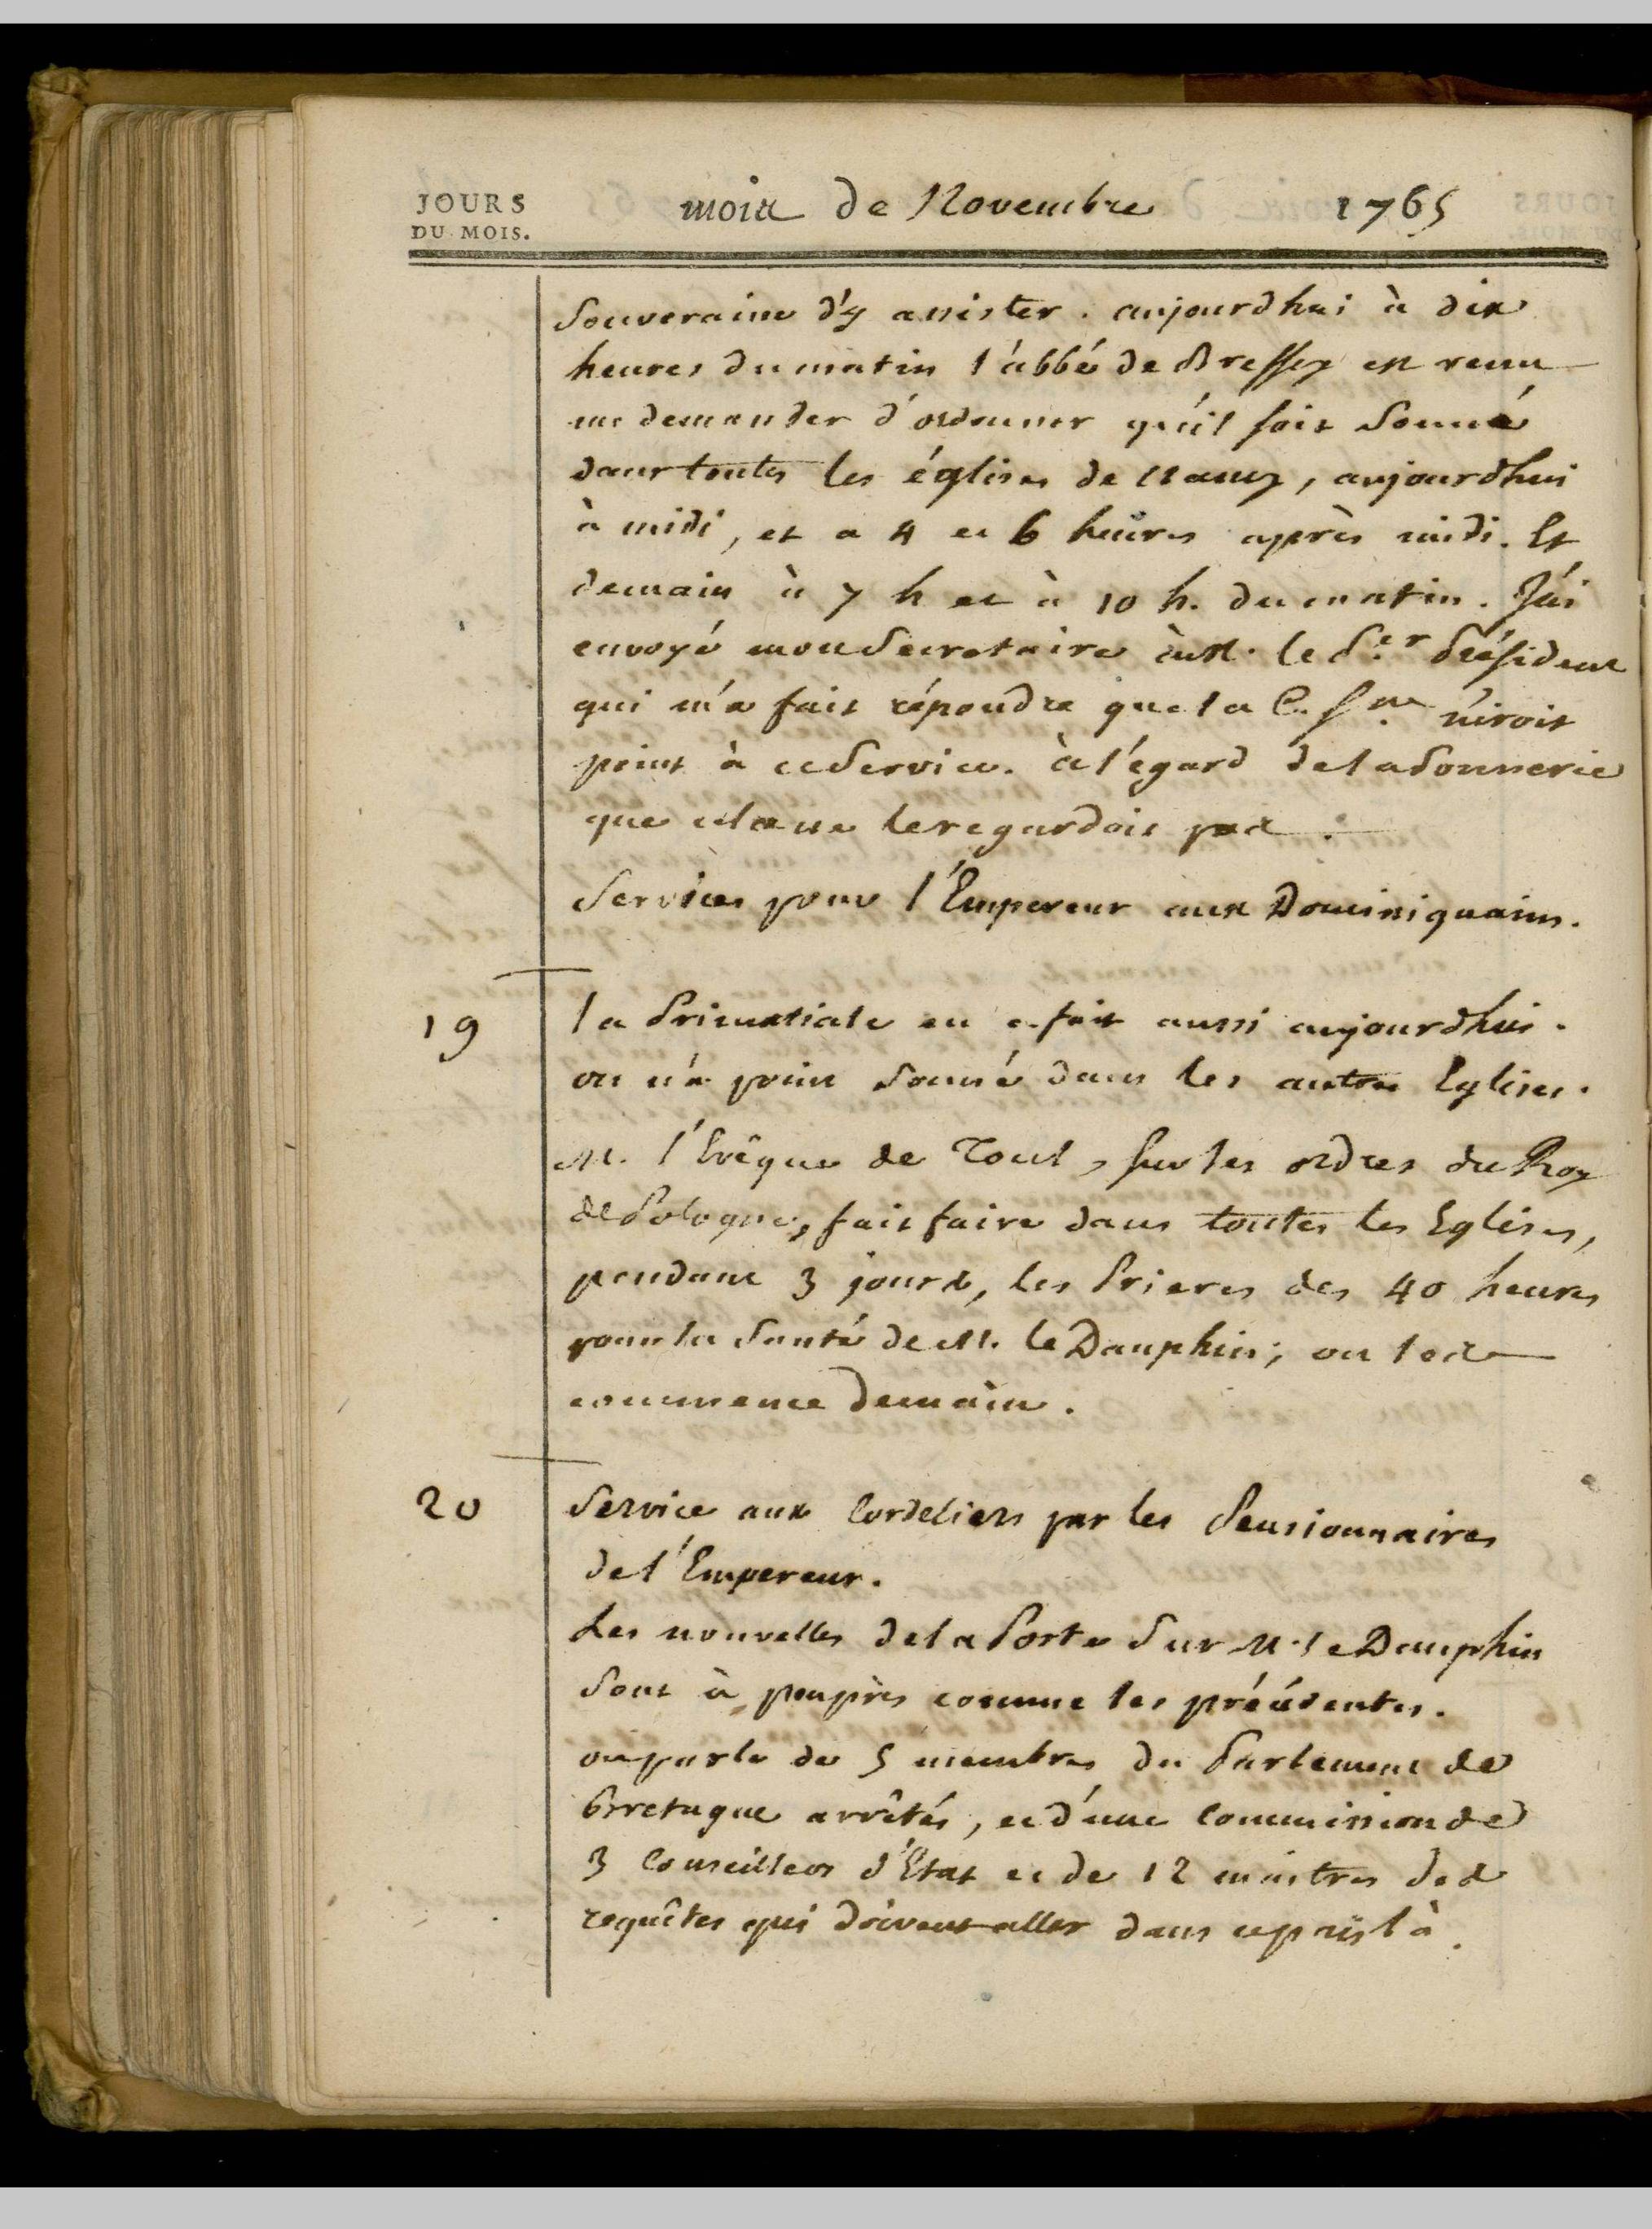 JOURS
DU MOIS.
mois de Novembre 1765
Souveraine d'y assister. aujourdhui à dix
heures du matin l'abbé de Bressey est venu
me demander d'ordonner qu'il soit sonné
dans toutes les églises de Nancy, aujourdhui
à midi, et a 4 et 6 heures après midi. Et
demain à 7 h et à 10 h. du matin. J'ai
envoyé mon Secretaire à M. le P.er Président
qui m'a fait répondre que la C. S.ne n'iroit
point à ce Service. à l'égard de la sonnerie
que cela ne le regardoit pas.
Services pour l'Empereur aux Dominiquains.
19
la Primatiale en a fait aussi aujourdhui.
on n'a point sonné dans les autres Eglises.
M. l'Evêque de Toul, sur les ordres du Roy
de Pologne, fait faire dans toutes les Eglises,
pendant 3 jours, les Prieres des 40 heures
pour la Santé de M. le Dauphin; on les
commence demain.
20
Service aux Cordeliers par les Pensionnaires
de l'Empereur.
Les nouvelles de la Poste sur M. le Dauphin
sont à peuprès comme les précédentes.
on parle de 5 membres du Parlement de
Bretagne arrêtés, et d'une Commission de
3 Conseillers d'Etat et de 12 maitres des
requêtes qui doivent aller dans ce païs là.